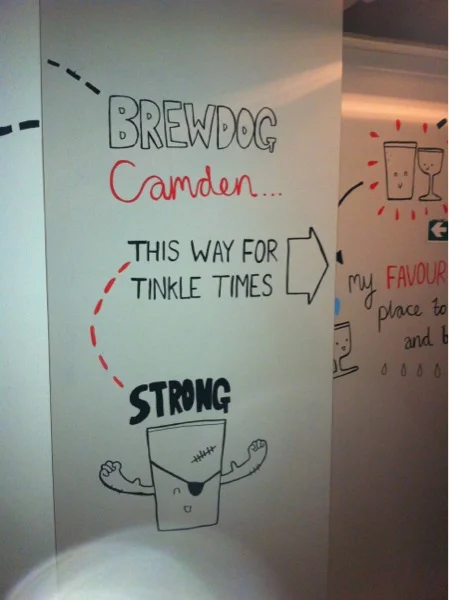 BREWDOG
Camden...
THIS WAY FOR
TINKLE TIMES
STRONG
my FAVOUR
place to
and b